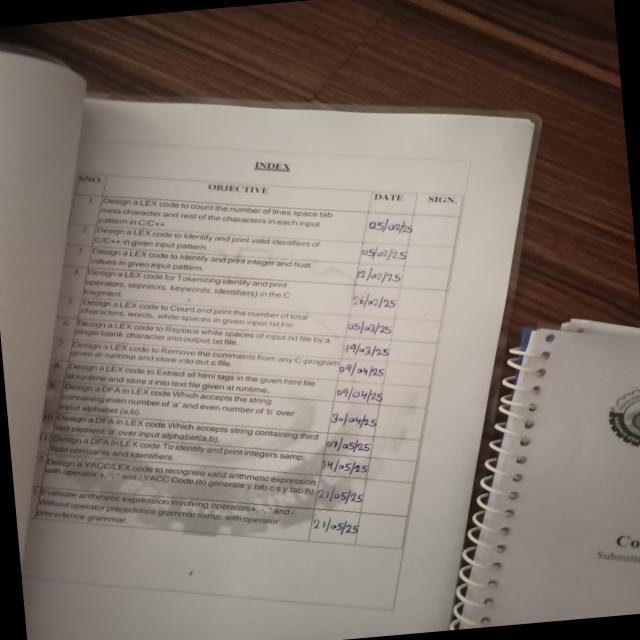 INDEX
SNO. OBJECTIVE DATE SIGN.
1. Design a LEX code to count the number of lines space tab
meta character and rest of the characters in each input
pattern in C/C++ 05/02/25
2. Design a LEX code to Identify and print valid identifiers of
C/C++ in given input pattern. 05/02/25
3. Design a LEX code to Identify and print integer and float
values in given input pattern. 12/02/25
4. Design a LEX code for Tokenizing Identify and print
operators, seprators, keywords, identifiers) in the C
fragment. 26/02/25
5. Design a LEX code to Count and print the number of total
characters, words, white spaces in given input.txt file. 05/03/25
6. Design a LEX code to Replace white spaces of input.txt file by a
single blank character into output.txt file. 19/03/25
7. Design a LEX code to Remove the comments from any C-program
given at runtime and store into out.c file. 09/04/25
8. Design a LEX code to Extract all html tags in the given html file
at runtime and store it into text file given at runtime. 09/04/25
9. Design a DFA in LEX code Which accepts the string
containing even number of 'a' and even number of 'b' over
input alphabet {a,b}. 30/04/25
10. Design a DFA in LEX code Which accepts string containing third
last element 'a' over input alphabet{a,b}. 07/05/25
11. Design a DFA in LEX code To identify and print integers &amp;
float constants and Identifiers. 14/05/25
Design a YACC/LEX code to recognise valid arithmetic expression
with operator +,-,* and / .YACC Code (to generate y.tab.c s y.tab.h) 21/05/25
Evaluate arithmetic expression involving operators +, -, * and /
Without operator precedence grammar &amp; with operator
precedence grammar. 21/05/25
Co